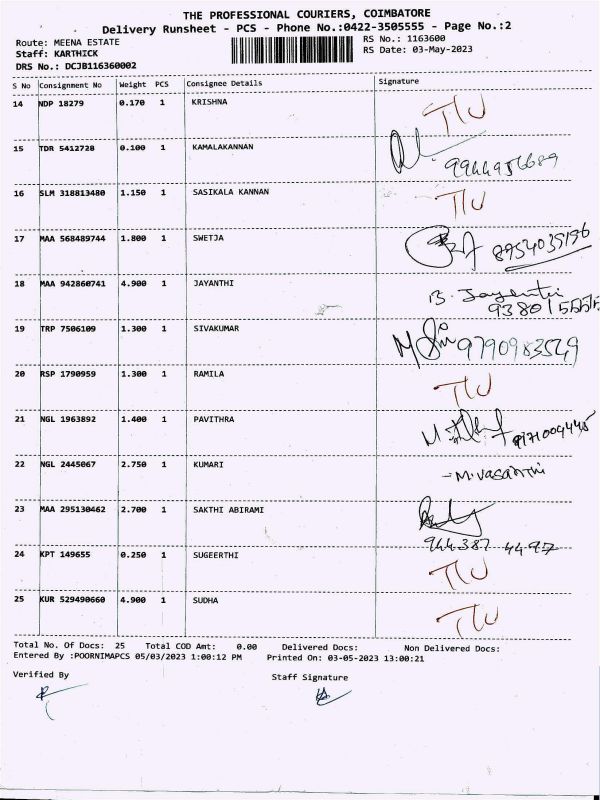 THE PROFESSIONAL COURIERS, COIMBATORE
Delivery Runsheet - PCS - Phone No.:0422-3505555 - Page No.:2
Route: MEENA ESTATE RS No.: 1163600
Staff: KARTHICK RS Date: 03-May-2023
DRS No.: DCJB116360002
S No Consignment No Weight PCS Consignee Details Signature
14 NDP 18279 0.170 1 KRISHNA
15 TDR 5412728 0.100 1 KAMALAKANNAN
16 SLM 318813480 1.150 1 SASIKALA KANNAN
17 MAA 568489744 1.800 1 SWETJA
18 MAA 942860741 4.900 1 JAYANTHI B. Jayanthi
19 TRP 7506109 1.300 1 SIVAKUMAR
20 RSP 1790959 1.300 1 RAMILA
21 NGL 1963892 1.400 1 PAVITHRA
22 NGL 2445067 2.750 1 KUMARI - M. Vasanthi
23 MAA 295130462 2.700 1 SAKTHI ABIRAMI
944387 4497
24 KPT 149655 0.250 1 SUGEERTHI
25 KUR 529490660 4.900 1 SUDHA
Total No. Of Docs: 25 Total COD Amt: 0.00 Delivered Docs: Non Delivered Docs:
Entered By :POORNIMAPCS 05/03/2023 1:00:12 PM Printed On: 03-05-2023 13:00:21
Verified By Staff Signature